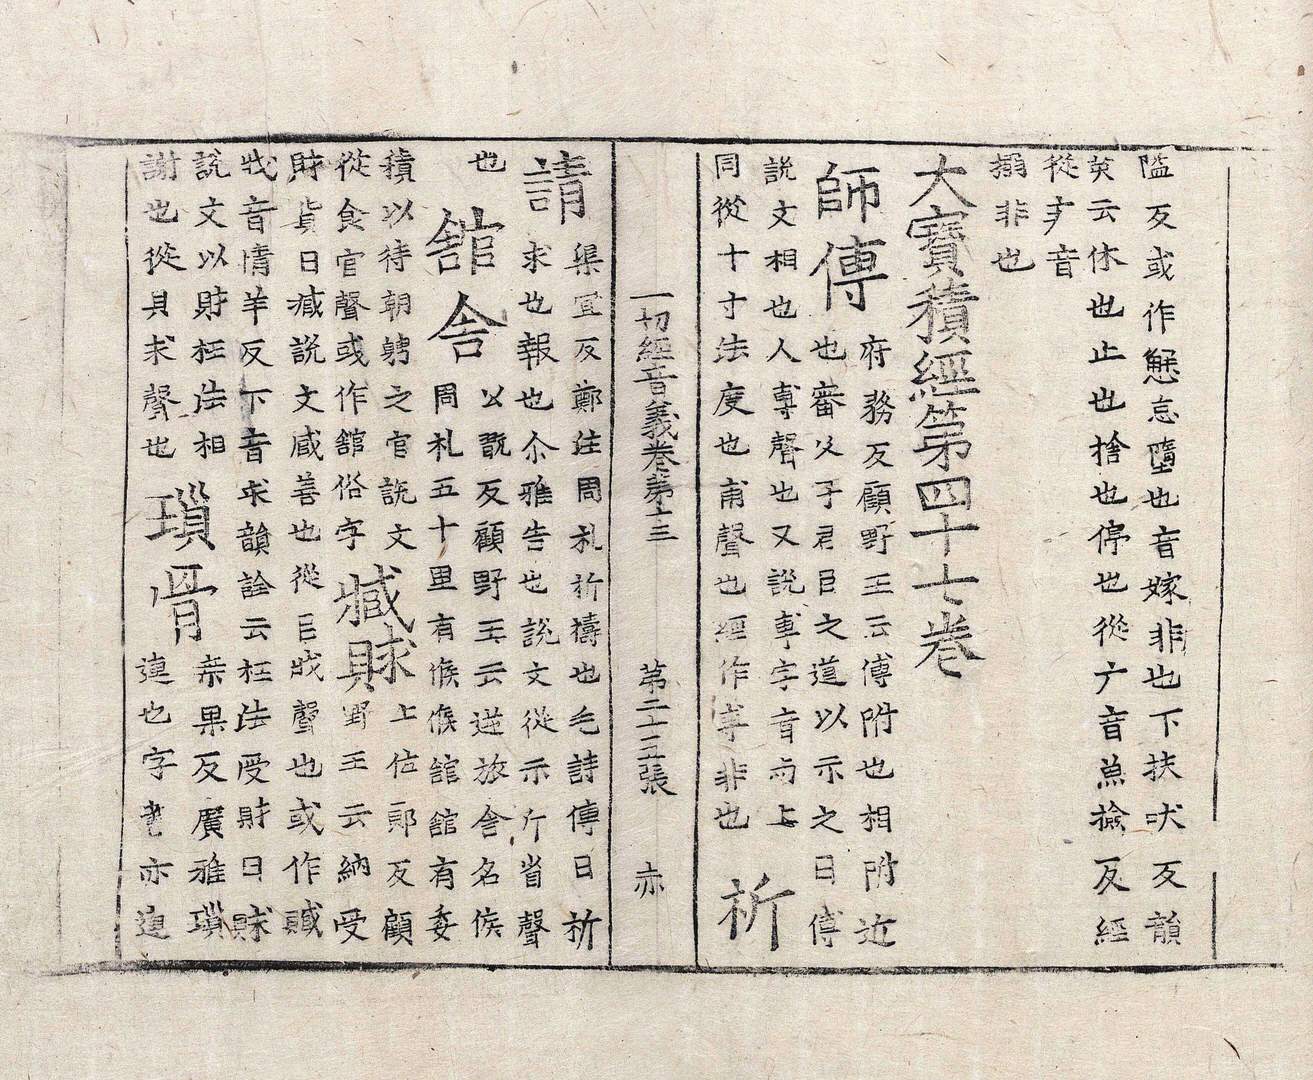 隘反或作懸怠墮也音嫁非也下扶吠反韻
英云休也止也捨也停也從广音魚撿反經
從疒音
搦非也
大寶積經第四十七卷
師傅
府務反顧野王云傅附也相附近
也審父子君臣之道以示之曰傅
說文相也人尃聲也又說尃字音雨上
同從十寸法度也甫聲也經作専非也
祈
一切經音義卷第十三 第二十五張 亦
請
渠宜反鄭注周礼祈禱也毛詩傅曰祈
求也報也尒雅告也說文從示斤省聲
也
舘舍
公翫反顧野王云逆旅舍名候
周礼五十里有候候舘舘有委
積以待朝聘之官說文
從食官聲或作舘俗字
臧賕
上佐郎反顧
野王云納受
財貨曰臧說文臧善也從臣戕聲也或作贓
戕音情羊反下音求韻詮云枉法受財曰賕
說文以財枉法相
謝也從貝求聲也
瑣骨
桒果反廣雅瑣
連也字書亦連